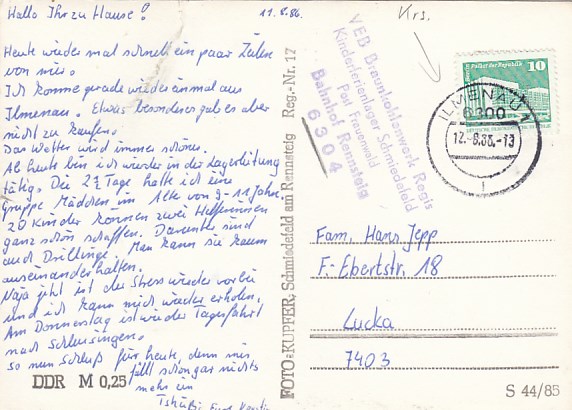 Hallo Ihr zu Hause!
11.8.86.
Heute wieder mal schnell ein paar Zeilen
von mir.
Ich komme gerade wieder einmal aus
Ilmenau. Etwas besonderes gab es aber
nicht zu kaufen.
Das Wetter wird immer schöner.
Ab heute bin ich wieder in der Lagerleitung
tätig. Die 2½ Tage hatte ich eine
Gruppe Mädchen im Alter von 9-11 Jahre.
20 Kinder können zwei Helferinnen
ganz schön schaffen. Darunter sind
auch Drillinge. Man kann sie kaum
auseinanderhalten.
Naja jetzt ist der Stress wieder vorbei
und ich kann mich wieder erholen.
Am Donnerstag ist wieder Tagesfahrt
nach Schleusingen.
So nun Schluß für heute, denn mir
fällt schon gar nichts
mehr ein
Tschüß Eure
DDR M 0,25
FOTO-KUPFER, Schmiedefeld am Rennsteig Reg.-Nr. 17
VEB Braunkohlenwerk Regis
Kinderferienlager Schmiedefeld
Post Frauenwald
Bahnhof Rennsteig
6304
Krs.
10
ILMENAU 1
6300
12.-8.86.-13
Fam. Hans Jepp
F.-Ebertstr. 18
Lucka
7403
S 44/85